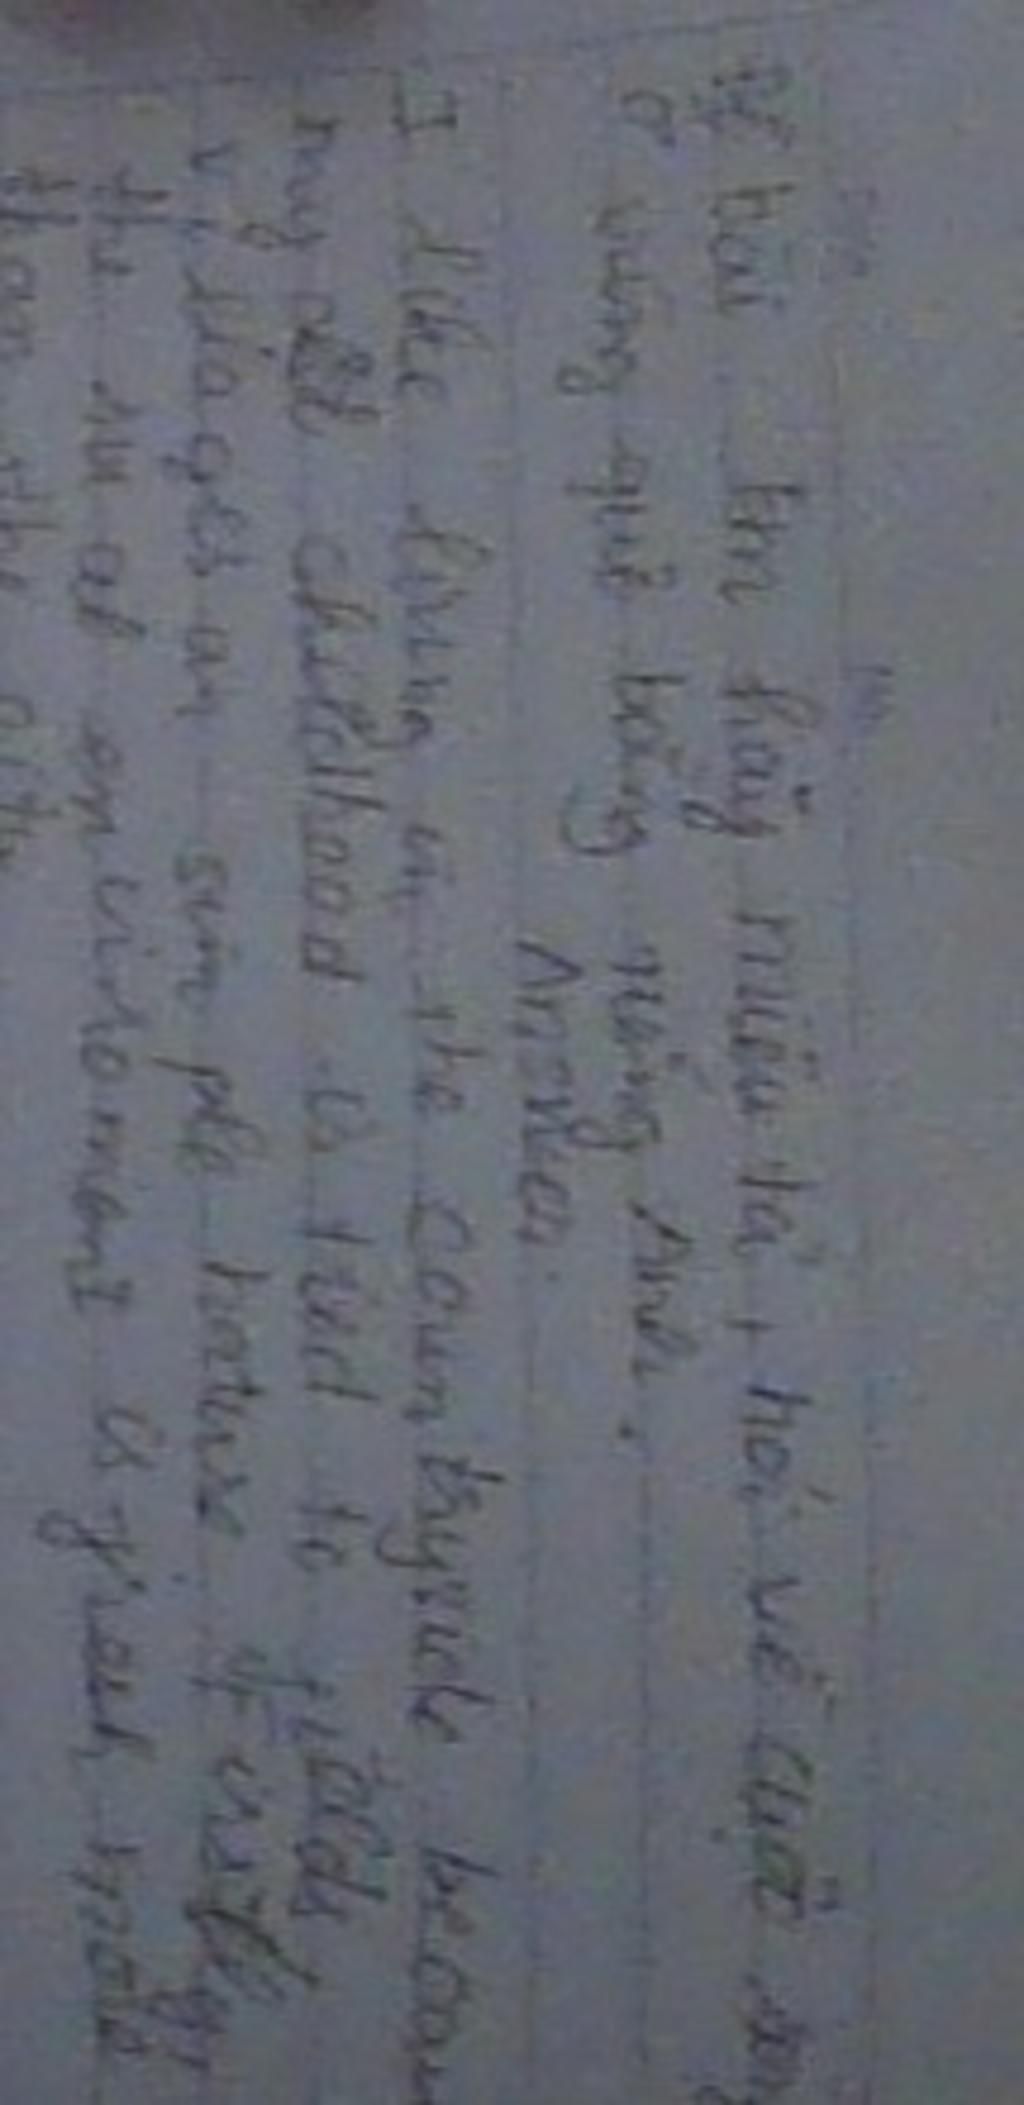 Đề bài: Em hãy miêu tả, nói về cuộc sống
ở vùng quê bằng tiếng Anh.
Answer
I like living in the Countryside becau
my childhood is tied to fields
villages an simple house. firstly
the environment is fresh
than the city